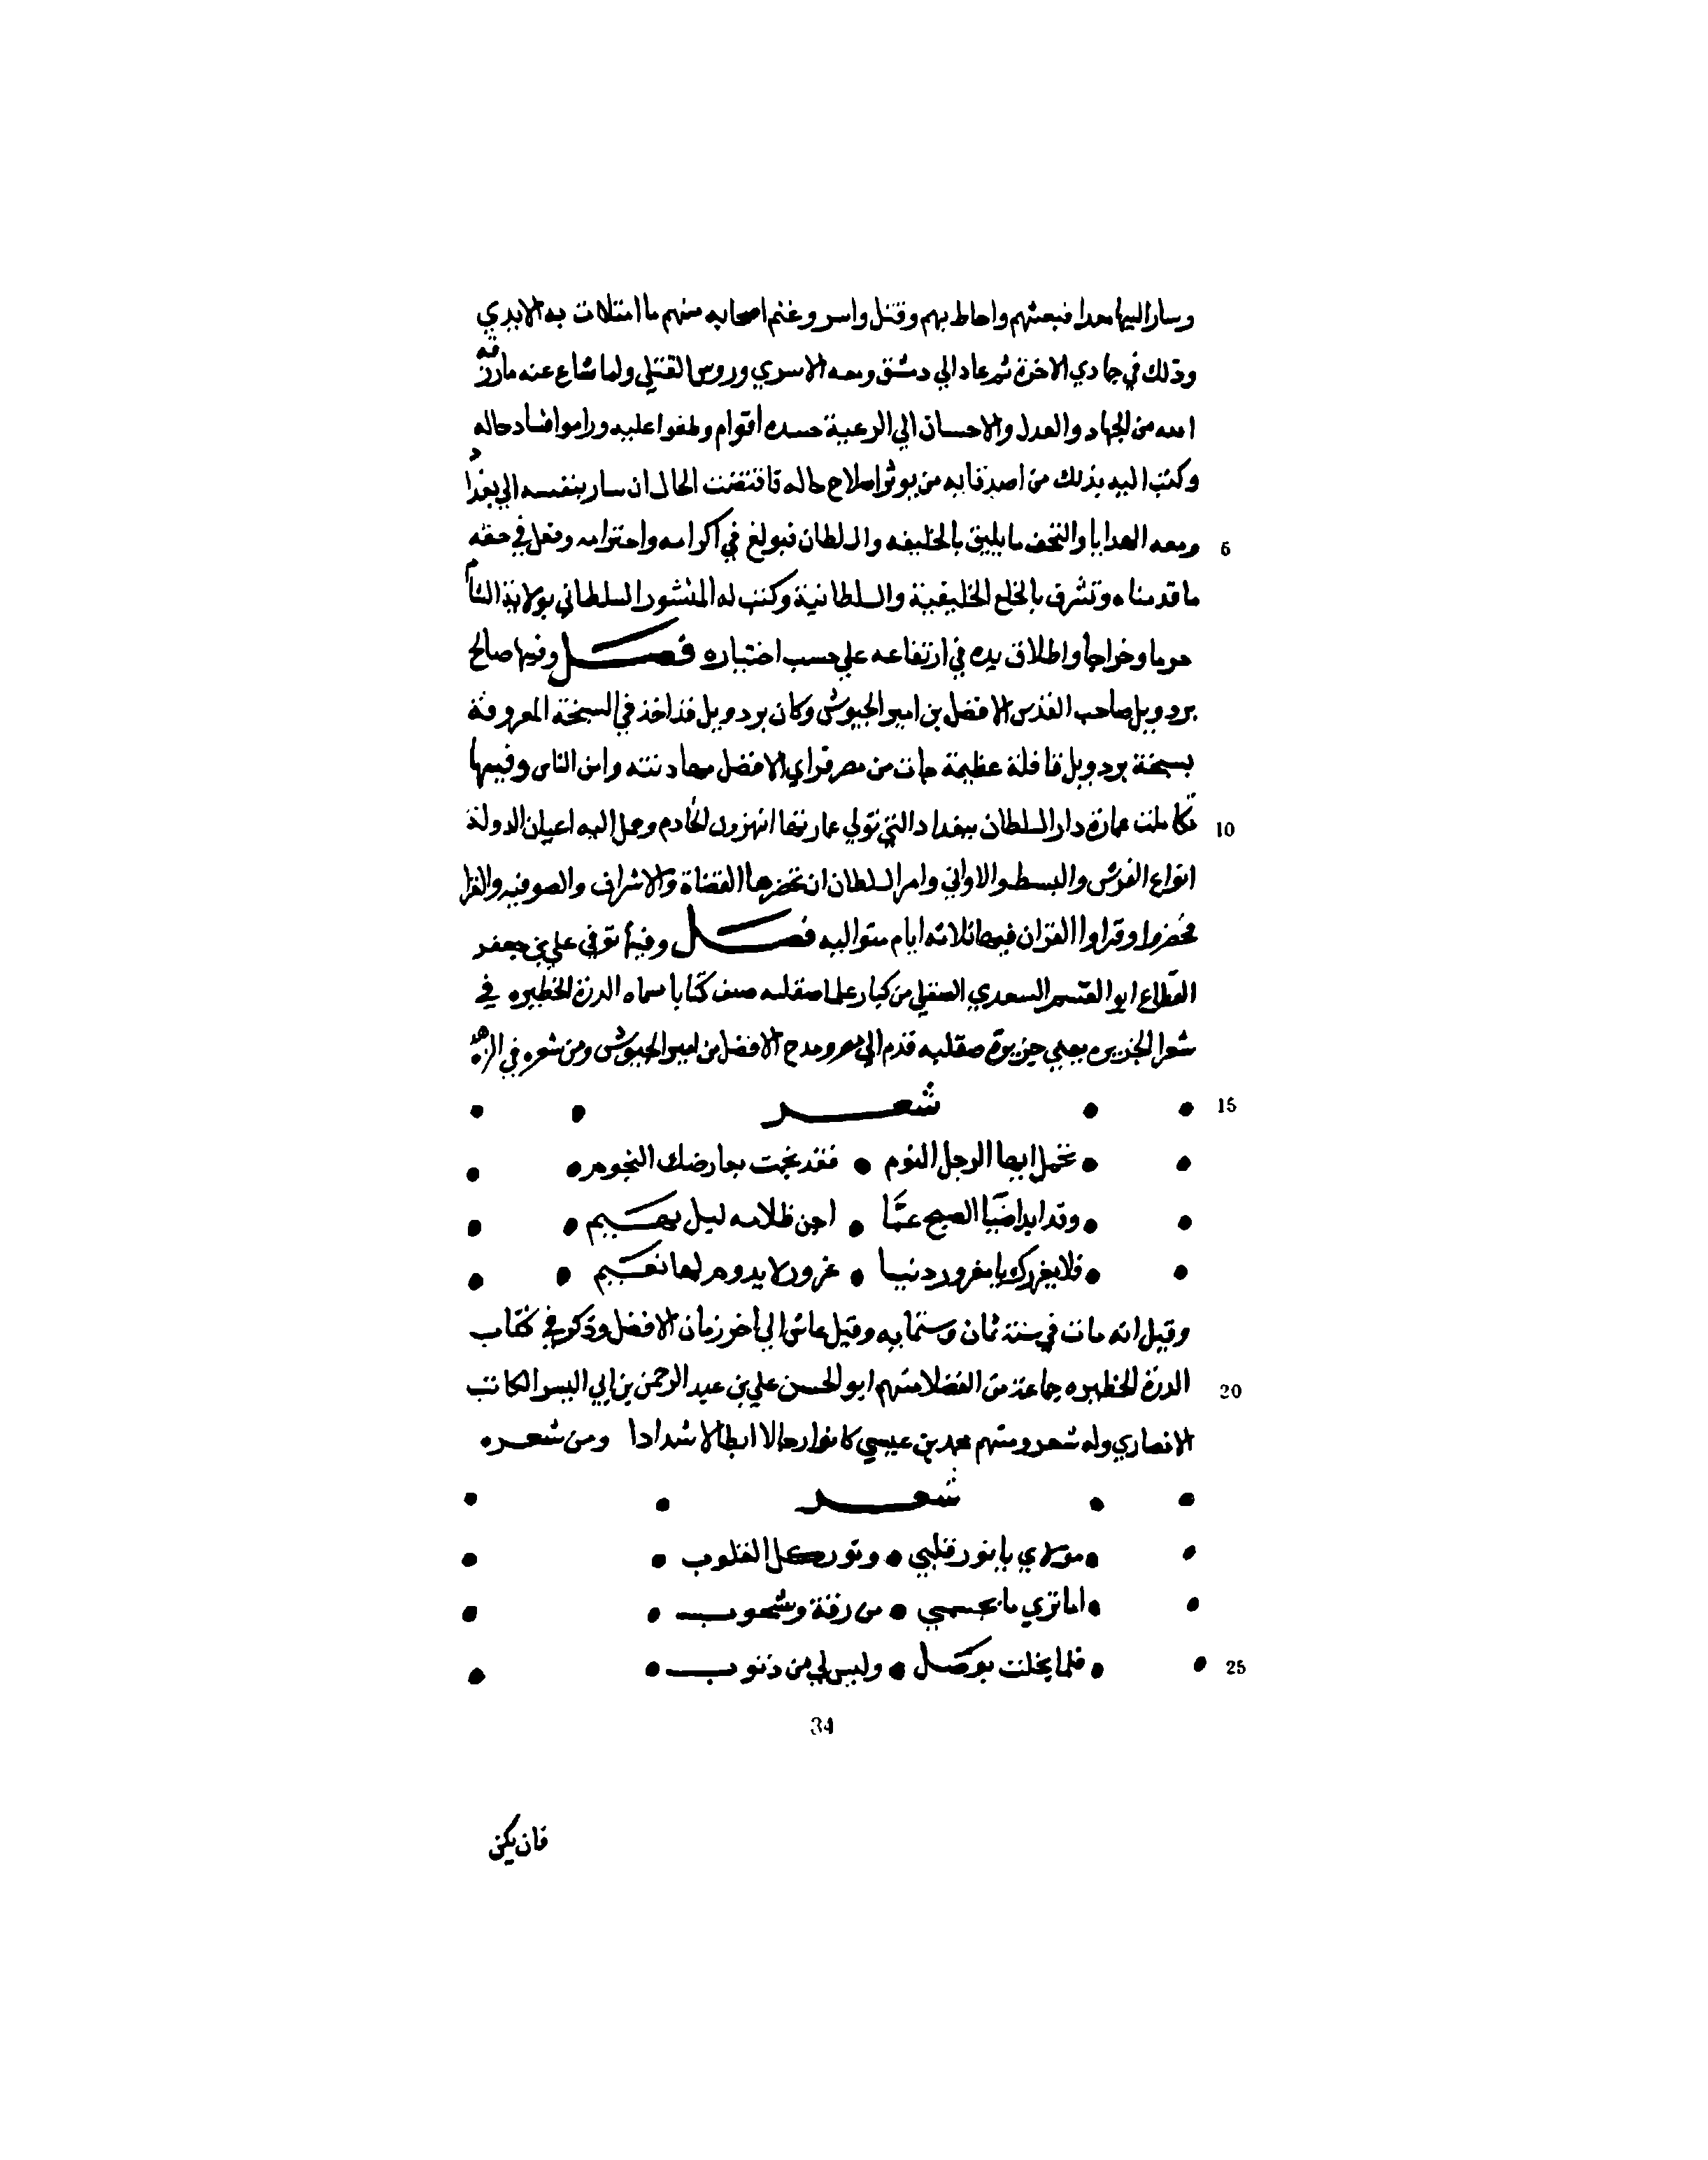 وسار اليها مجدا فبعثهم واحاط بهم وقتل واسر وغنم اصحابه منهم ما امتلات به الايدي
وذلك في جمادي الاخرة ثم عاد الي دمشق ومعه الاسري وروس القتلي ولما شاع عنه مارزقه
الله من الجهاد والعدل والاحسان الي الرعية حسده اقوام وطغوا عليه وراموا افساد حاله
وكتب اليه بذلك من اصدقايه من يوثر اصلاح حاله فاقتضت الحال ان سار بنفسه الي بغداد
ومعه الهدايا والتحف ما يليق بالخليفه والسلطان فبولغ في اكرامه واحترامه وفعل في حقه 5
ما قدمناه وتشرف بالخلع الخليفية والسلطانية وكتب له المنشور السلطاني بولاية الشام
حربا وخراجا واطلاق يده في ارتفاعه علي حسب اختياره فصل وفيها صالح
بردويل صاحب القدس الافضل بن امير الجيوش وكان بردويل قد اخذ في السبخة المعروفة
بسبخة بردويل قافلة عظيمة جات من مصر فراي الافضل مهادنته وامن الناس وفيها
تكاملت عمارة دار السلطان ببغداد التي تولي عمارتها انهزون الخادم وحمل اليه اعيان الدولة 10
انواع الفرش والبسط والاواني وامر السلطان ان تحضرها القضاة والاشراف والصوفيه والقرا
فحضروا وقراوا القران فيها ثلاثه ايام متواليه فصل وفيها توفي علي بن جعفر
القطاع ابو القسم السعدي الصقلي من كبار علما صقليه صنف كتابا سماه الدرة الخطيره في
شعرا الجزيره يعني جزيرة صقليه قدم الي مصر ومدح الافضل بن امير الجيوش ومن شعره في الزهد
شعر 15
تحمل ايها الرجل النوم • فقد نجمت بعارضك النجوم
وقد ابدا ضيا الصبح عما • اجن ظلامه ليل بهيم
فلا يغررك يا مغرور دنيا • غرور لا يدوم لها نعيم
وقيل انه مات في سنة ثمان وستمايه وقيل عاش الي اخر زمان الافضل وذكر في كتاب
الدرة الخطيره جماعة من الفضلا منهم ابو الحسن علي بن عبد الرحمن بن ابي البسر الكاتب 20
الانصاري وله شعر ومنهم محمد بن عيسي كانوا رجالا ابطالا شدادا ومن شعره
شعر
مولاي يا نور قلبي • ونور كل القلوب
اما تري ما بجسمي • من رقة وشحوب
فلما بخلت بوصل • وليس لي من ذنوب 25
34
فان يكن